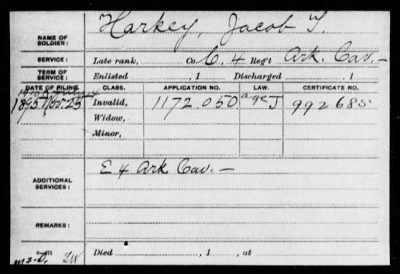 NAME OF SOLDIER: Harkey, Jacob T.
SERVICE: Late rank, Co. C. 4 Reg't Ark. Cav. —
TERM OF SERVICE: Enlisted , 1 Discharged , 1
DATE OF FILING. CLASS. APPLICATION NO. LAW. CERTIFICATE NO.
1895 Nov. 25 Invalid, 1172.050 J 992685
Widow,
Minor,
ADDITIONAL SERVICES: E 4 Ark. Cav. —
REMARKS:
Died , 1 , at